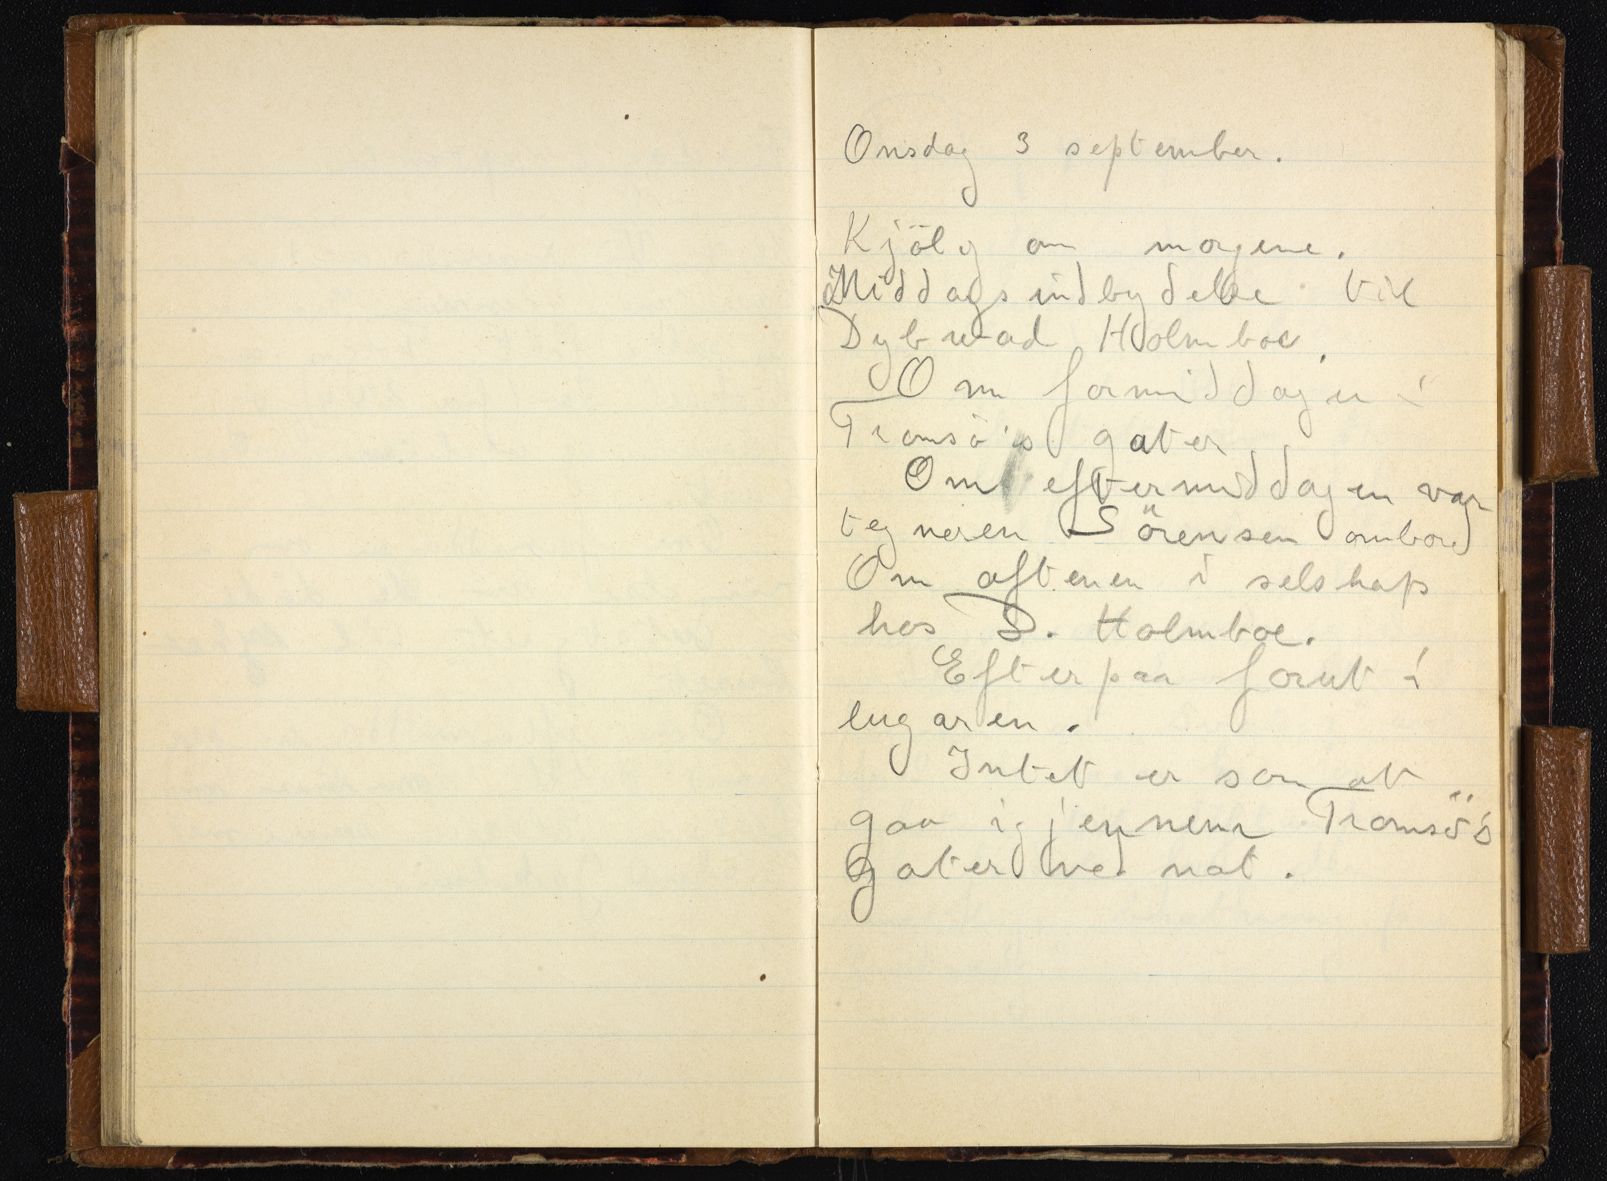 Onsdag 3 september.
Kjölig om morgene.
Middagsindbydelse til
Dybwad Holmboe.
Om formiddagen i
Tromsö's gater
Om eftermiddagen var
tegneren Sörensen ombord
Om aftenen i selskap
hos D. Holmboe.
Efterpaa forut i
lugaren.
Intet er som at
gaa igjennem Tromsö's
gater ved nat.